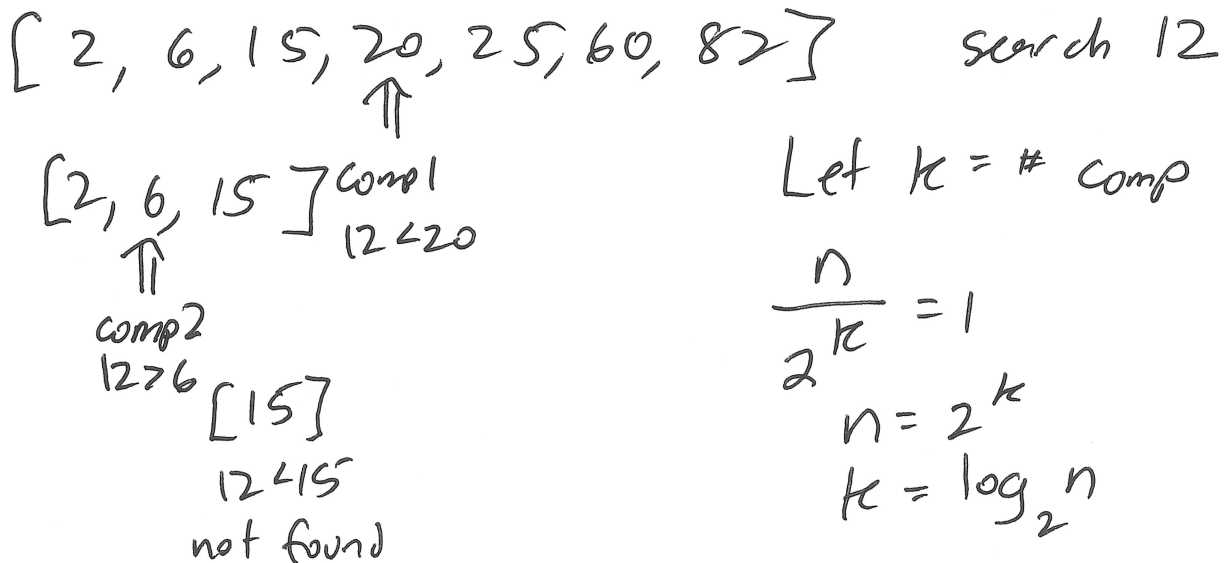 [2, 6, 15, 20, 25, 60, 82] search 12
⇑
[2, 6, 15] comp1
12<20
⇑
comp2
12>6
[15]
12<15
not found
Let k = # comp
n/2^k = 1
n = 2^k
k = log₂n